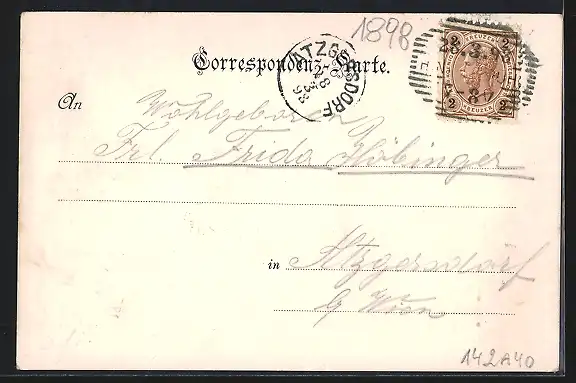 1898
Correspondenz-Karte.
ATZGERSDORF
28 3 98
2 KREUZER 2
2 KREUZER 2
An Wohlgeboren
Frl. Frida Höbinger
in Atzgersdorf
b/ Wien
142A40